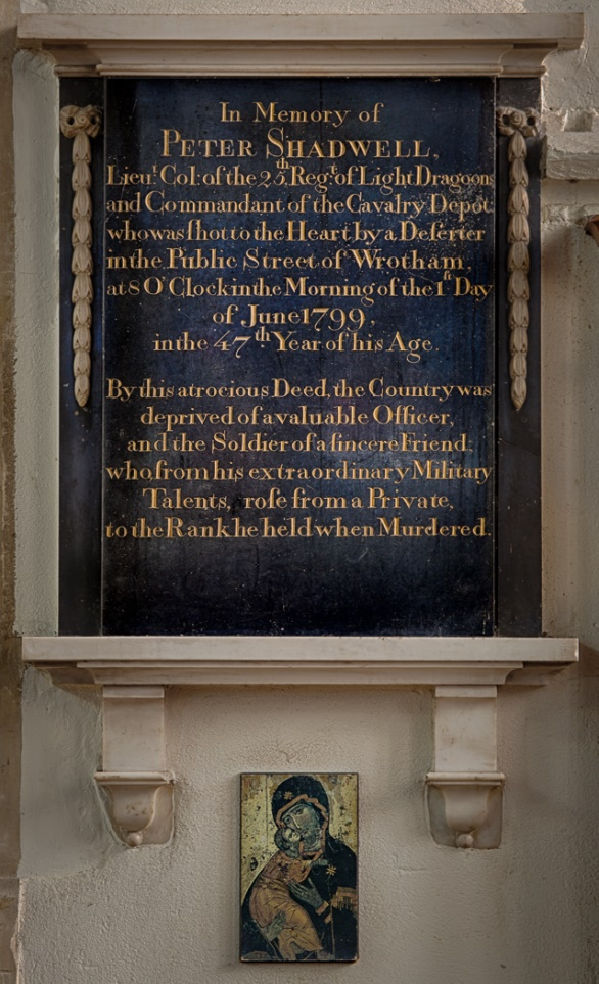 In Memory of
PETER SHADWELL,
Lieuᵗ. Col: of the 25ᵗʰ Regᵗ. of Light Dragoons
and Commandant of the Cavalry Depot
who was ſhot to the Heart by a Deſerter
in the Public Street of Wrotham,
at 8 O'Clock in the Morning of the 1ſᵗ Day
of June 1799,
in the 47ᵗʰ Year of his Age.
By this atrocious Deed, the Country was
deprived of a valuable Officer,
and the Soldier of a ſincere Friend.
who, from his extraordinary Military
Talents, roſe from a Private,
to the Rank he held when Murdered.